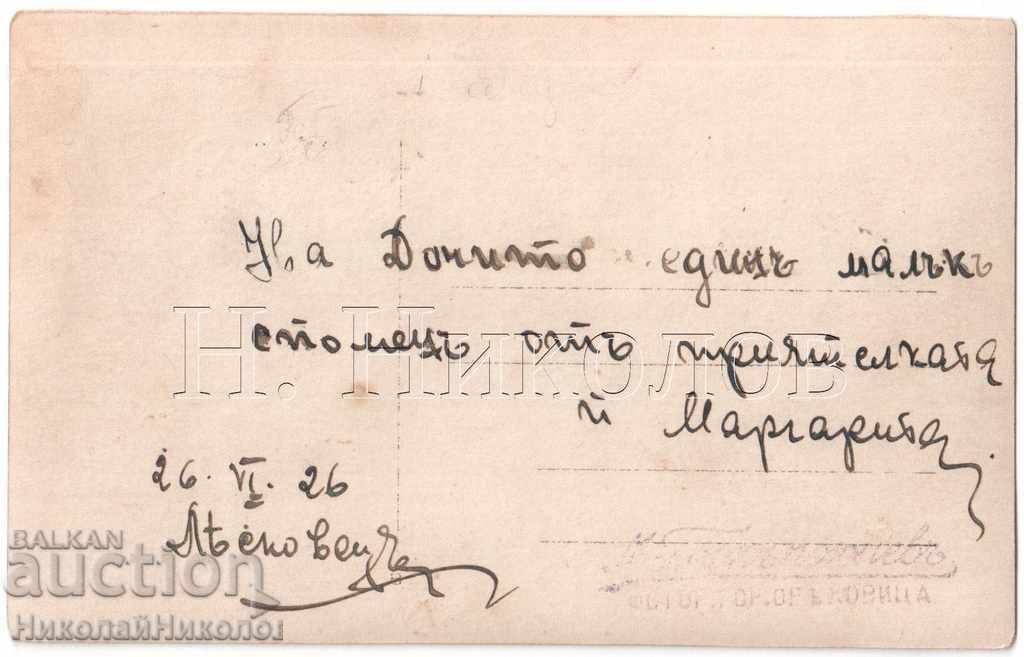 На Дочито единъ малъкъ
споменъ отъ приятелката
й Маргарита.
26. VI. 26
Лѣсковецъ
Н. Николов
BALKAN
auction
НиколайНиколов
ФОТОГР. ГОР. ОРѢХОВИЦА